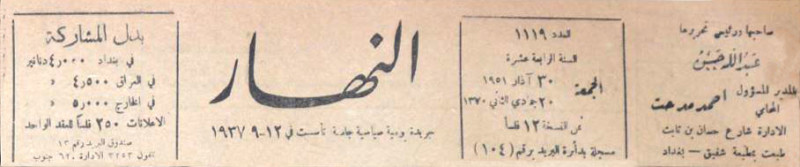 صاحبها ورئيس تحريرها
عبدالله حسن
المدير المسؤول
المحامي احمد مدحت
الادارة شارع حسان بن ثابت
طبعت بمطبعة شفيق — بغداد
العدد ١١١٩
السنة الرابعة عشرة
الجمعة
٣٠ آذار ١٩٥١
٢٠ جمادي الثاني ١٣٧٠
ثمن النسخة ١٢ فلساً
مسجلة بدأرة البريد برقم (١٠٤)
النهار
جريدة يومية سياسية جامعة تأسست في ١٢-٩-١٩٣٧
بدل المشاركة
في بغداد ٤٫٠٠٠ دنانير
في العراق ٤٫٥٠٠ »
في الخارج ٥٫٠٠٠ »
الاعلانات ٢٥٠ فلساً للعقد الواحد
صندوق البريد رقم ١٣
تلفون ٣٢٥٣ الادارة ٦٢٠ جنوب